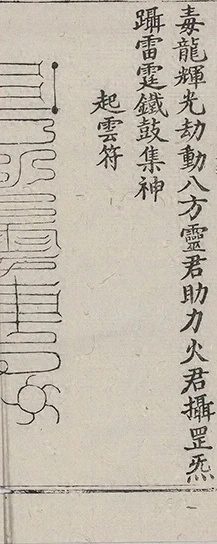 毒龍輝光劫動八方靈君助力火君攝罡炁
躡雷霆鐵鼓集神
起雲符